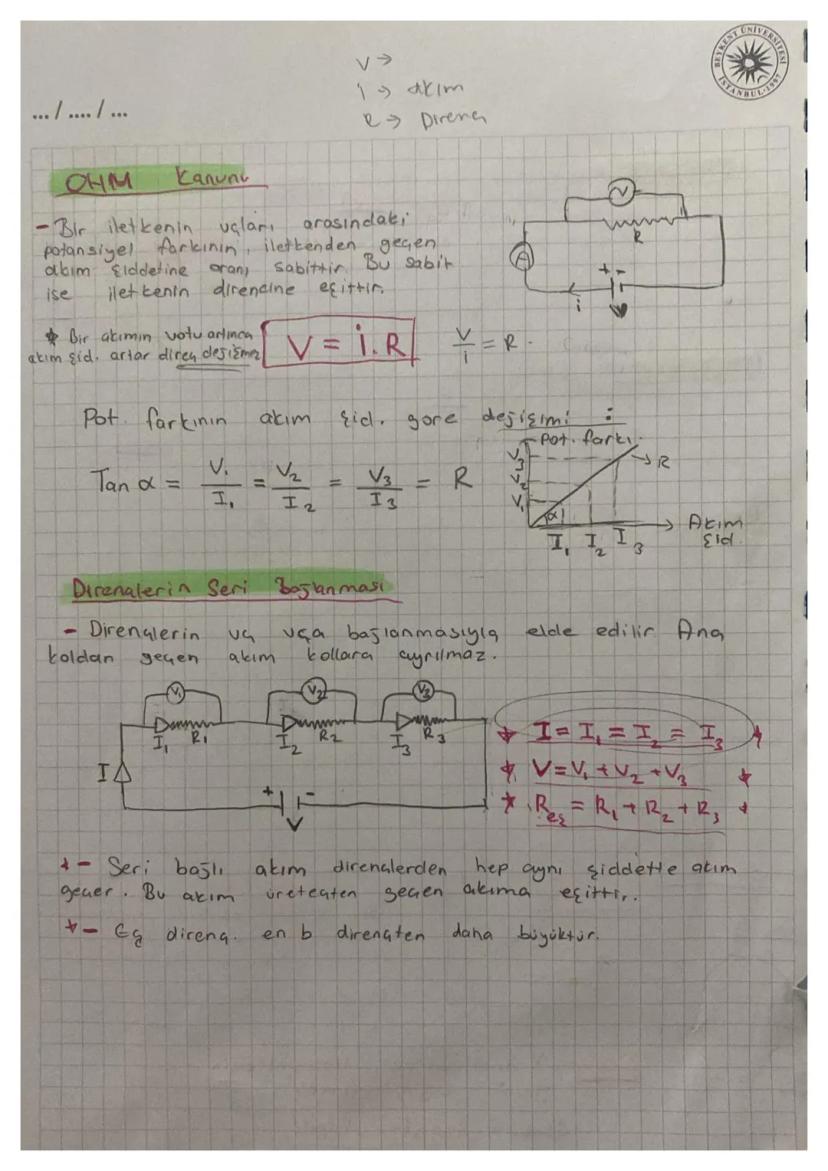 V →
i → akım
R → Direnç
BEYKENT ÜNİVERSİTESİ
İSTANBUL-1997
... / .... / ...
OHM Kanunu
- Bir iletkenin uçları arasındaki
potansiyel farkının, iletkenden geçen
akım şiddetine oranı sabittir. Bu sabit
ise iletkenin direncine eşittir.
V
R
A
+ -
i
V
* Bir akımın voltu artınca
akım şid. artar direnç değişmez
V = İ.R
V/i = R
Pot. farkının akım şid. göre değişimi :
Tan α = V₁/I₁ = V₂/I₂ = V₃/I₃ = R
Pot. farkı
V₃
V₂
V₁
R
α
I₁ I₂ I₃
Akım
Şid.
Dirençlerin Seri Bağlanması
- Dirençlerin uç uça bağlanmasıyla elde edilir Ana
koldan geçen akım kollara ayrılmaz.
V₁ V₂ V₃
I₁ R₁ I₂ R₂ I₃ R₃
I
+ -
V
* I = I₁ = I₂ = I₃ *
* V = V₁ + V₂ + V₃ *
* Reş = R₁ + R₂ + R₃ *
* - Seri bağlı akım dirençlerden hep aynı şiddette akım
geçer. Bu akım üreteçten geçen akıma eşittir.
* - Eş direnç. en b dirençten daha büyüktür.